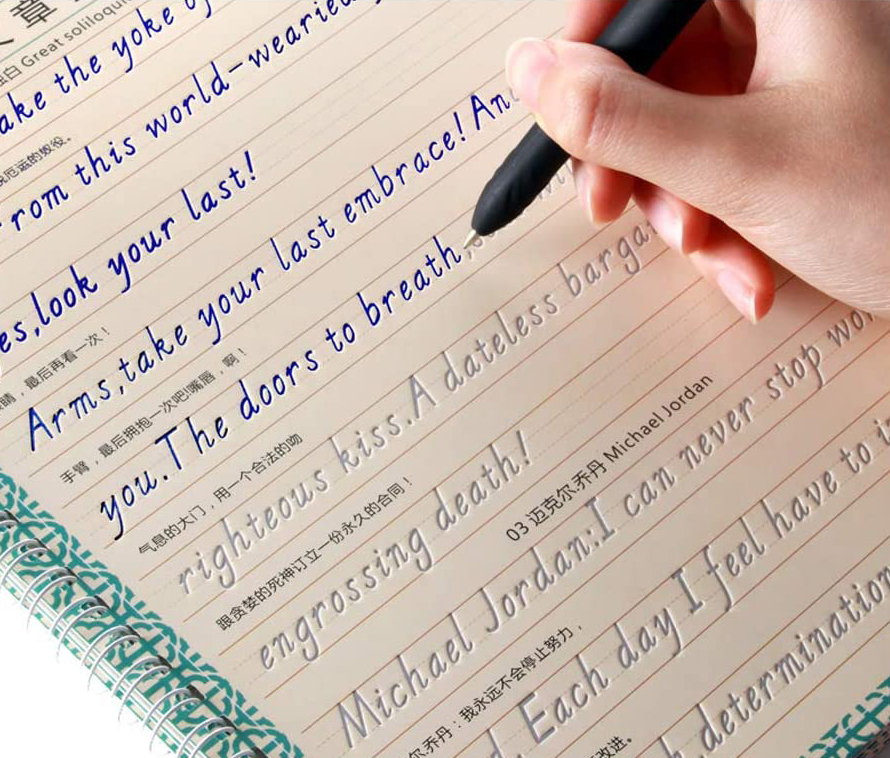 章
独白 Great soliloquie
ake the yoke o
脱厄运的奴役。
rom this world-wearied
es,look your last!
眼睛，最后再看一次！
Arms,take your last embrace! And
手臂，最后拥抱一次吧!嘴唇，啊！
you.The doors to breath,
气息的大门，用一个合法的吻
righteous kiss.A dateless barga
跟贪婪的死神订立一份永久的合同！
engrossing death!
03 迈克尔.乔丹 Michael Jordan
Michael Jordan:I can never stop wo
尔.乔丹：我永远不会停止努力，
d. Each day I feel have to i
改进。
determination